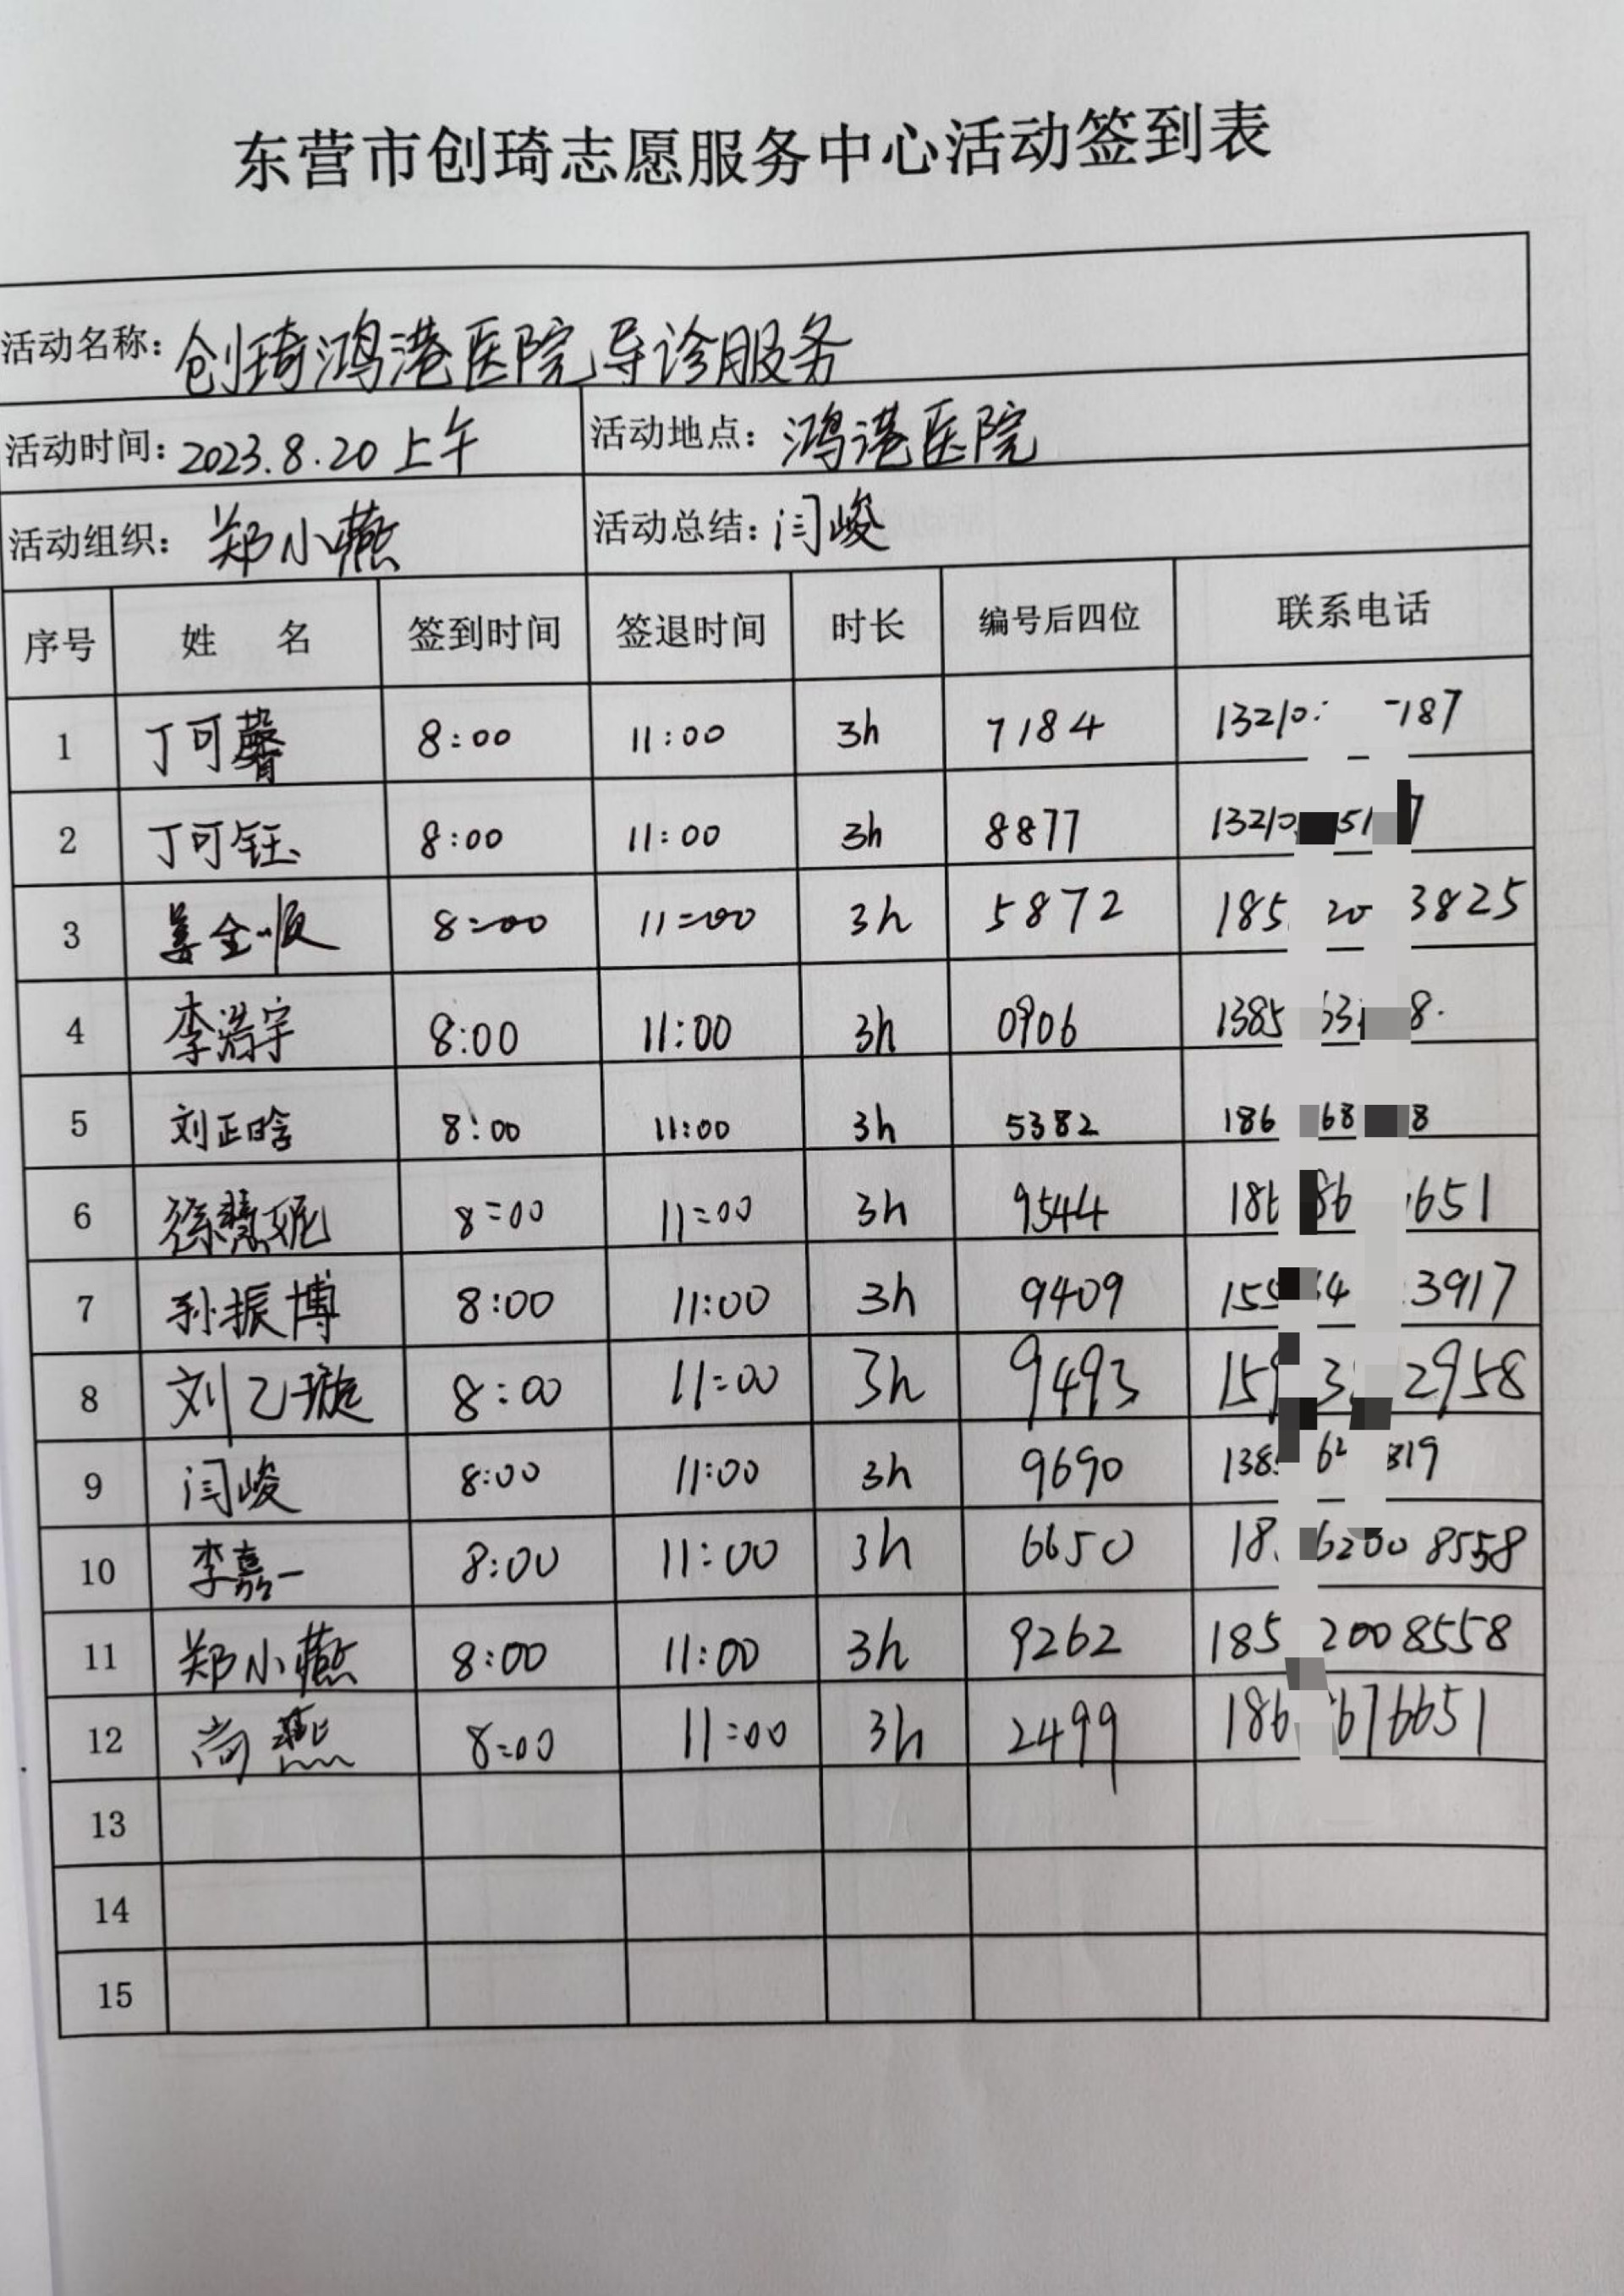 东营市创琦志愿服务中心活动签到表
活动名称：创琦鸿港医院导诊服务
活动时间：2023.8.20 上午 活动地点：鸿港医院
活动组织：郑小燕 活动总结：闫峻
序号 姓 名 签到时间 签退时间 时长 编号后四位 联系电话
1 丁可馨 8:00 11:00 3h 7184 13210 187
2 丁可钰 8:00 11:00 3h 8877 13210 51 7
3 姜全顺 8:00 11:00 3h 5872 185 20 3825
4 李浩宇 8:00 11:00 3h 0906 1385 63 8
5 刘正晗 8:00 11:00 3h 5382 186 68 8
6 徐慧妮 8:00 11:00 3h 9544 186 86 651
7 孙振博 8:00 11:00 3h 9409 155 4 3917
8 刘乙璇 8:00 11:00 3h 9493 159 3 2958
9 闫峻 8:00 11:00 3h 9690 138 62 319
10 李嘉一 8:00 11:00 3h 6650 18 6200 8558
11 郑小燕 8:00 11:00 3h 9262 185 2008558
12 尚燕 8:00 11:00 3h 2499 186 676651
13
14
15